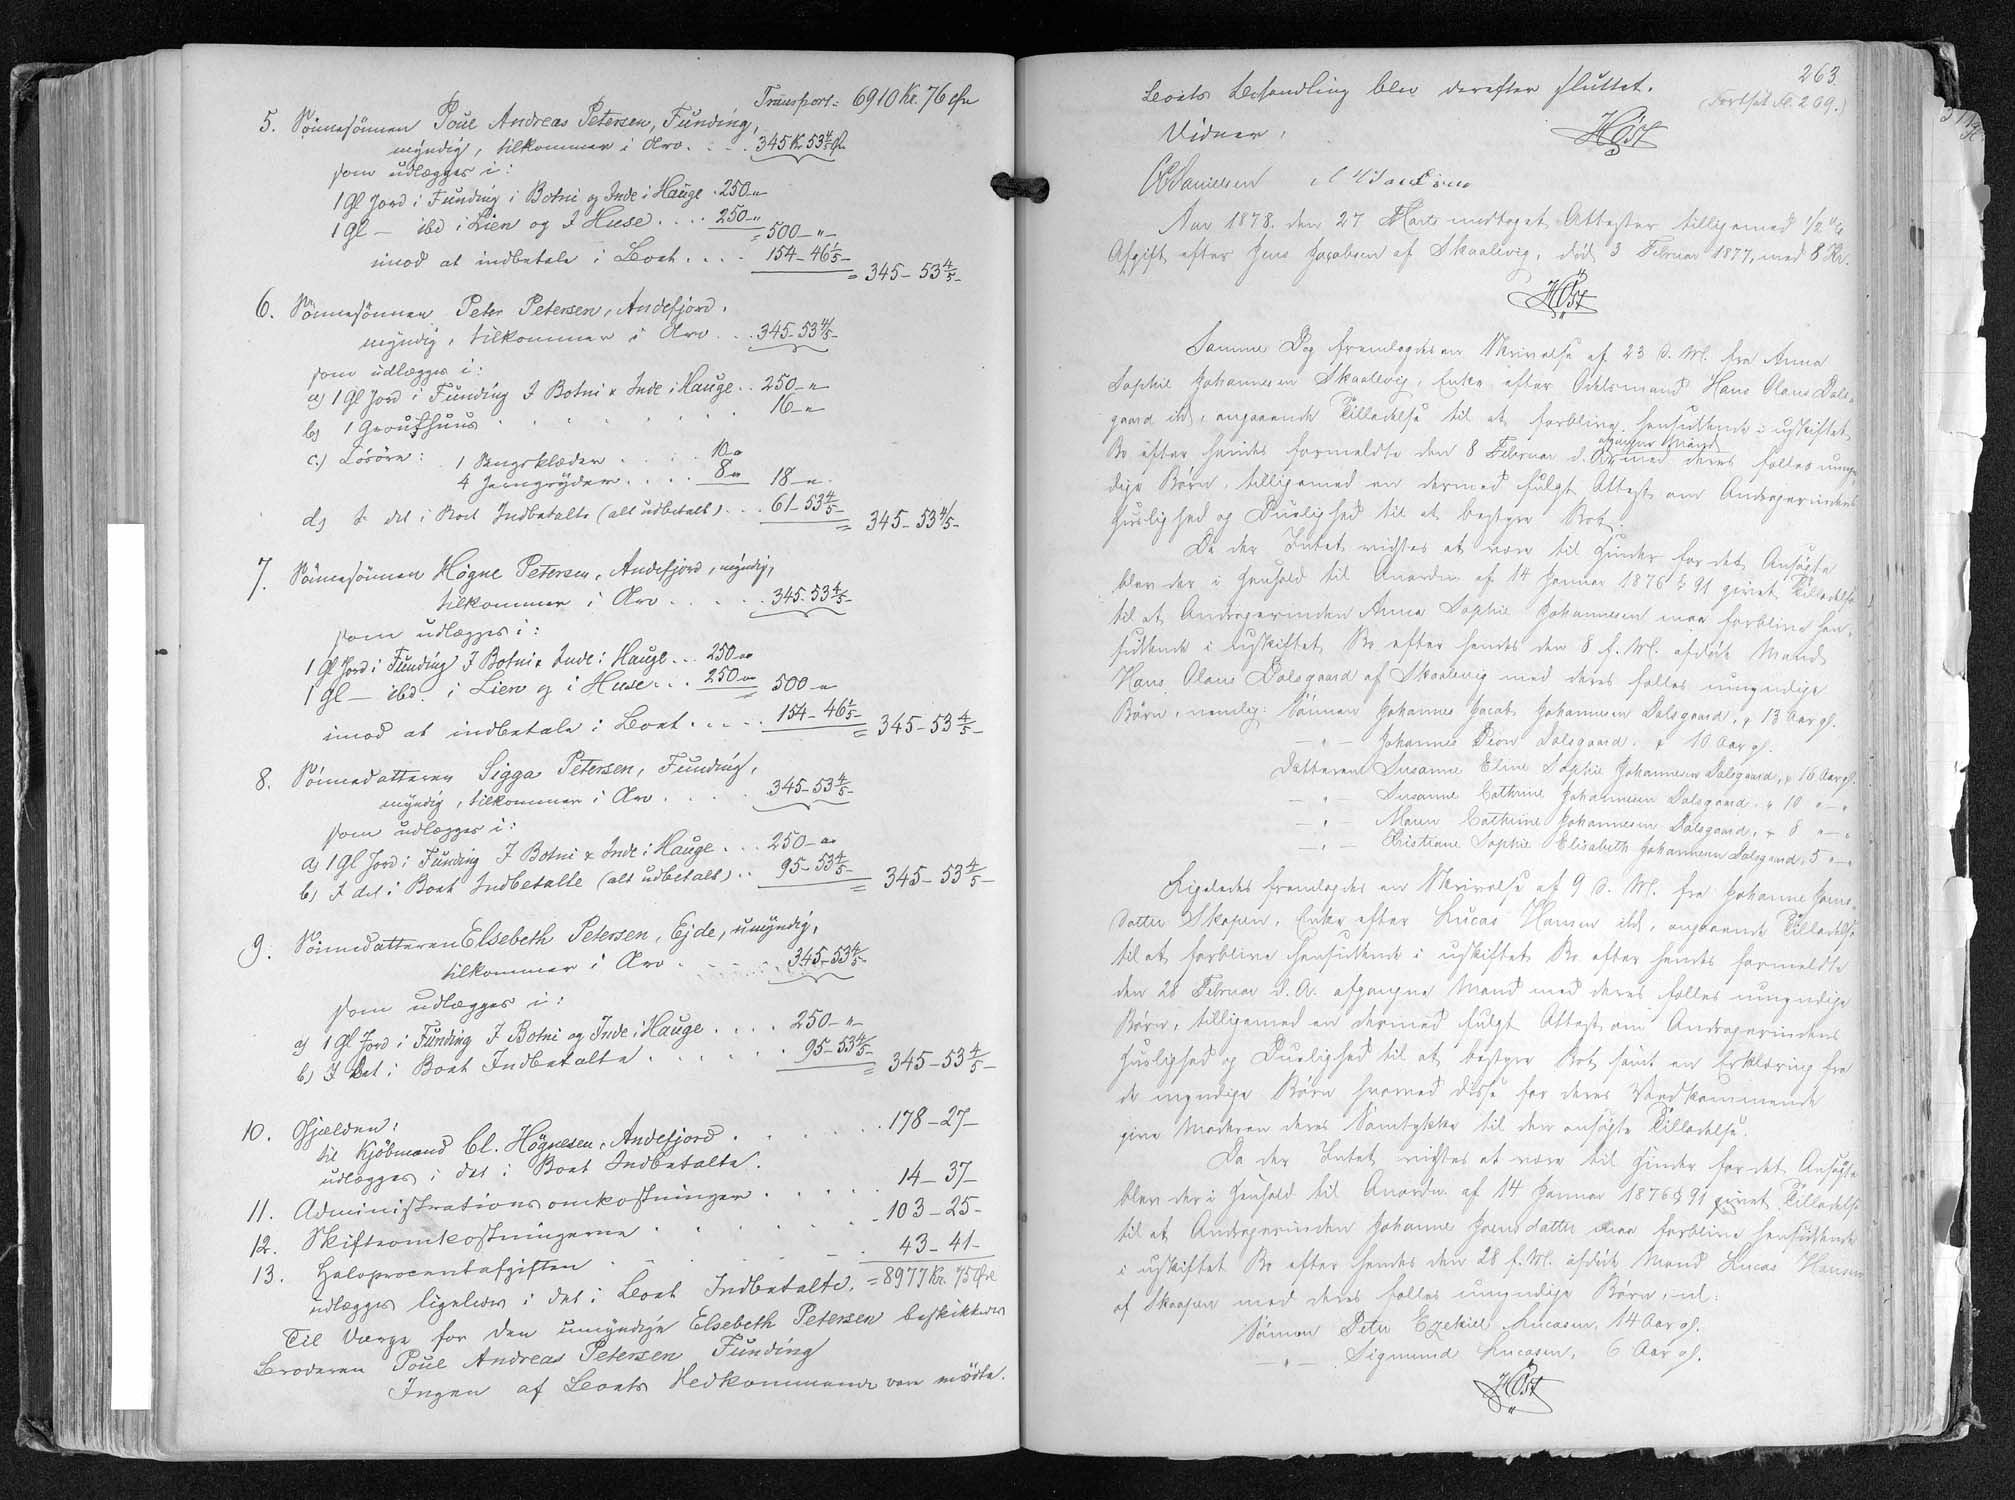 Transport: 6910 Kr. 76 Øre
5. Sönnesönnen Poul Andreas Petersen, Funding,
myndig, tilkommer i Arv . . . 345 Kr. 53 4/5 Ø.
som udlægges i:
1 Gl Jord i Funding i Botni og Inde i Hauge . 250 „
1 Gl — ibd i Lien og I Huse . . . . 250 „
= 500 - „ -
imod at indbetale i Boet . . . . 154 - 46 1/5 -
= 345 - 53 4/5 -
6. Sönnesönnen Peter Petersen, Andefjord,
myndig, tilkommer i Arv . . . 345 - 53 4/5 -
som udlægges i:
a) 1 Gl Jord i Funding I Botni & Inde i Hauge . . 250 - „
b) 1 Grouthuus . . . . . . 16 - „
c.) Lösöre: 1 Sengeklæder . . . . 10 „
4 Jerngryder . . . . 8 „ 18 - „
d) I det i Boet Indbetalte (alt udbetalt) . . . 61 - 53 4/5 -
= 345 - 53 4/5 -
7. Sönnesönnen Högne Petersen, Andefjord, myndig,
tilkommer i Arv . . . . . . 345 - 53 4/5 -
som udlægges i:
1 Gl Jord i Funding I Botni & Inde i Hauge . . . 250 „
1 Gl — ibd. i Lien og i Huse . . . 250 „ 500 - „
imod at indbetale i Boet . . . . . 154 - 46 1/5 -
= 345 - 53 4/5 -
8. Sönnedatteren Sigga Petersen, Funding,
myndig, tilkommer i Arv . . . . . 345 - 53 4/5 -
som udlægges i:
a) 1 Gl Jord i Funding I Botni & Inde i Hauge . . . 250 - „
b) I det i Boet Indbetalte (alt udbetalt) . . 95 - 53 4/5 -
= 345 - 53 4/5 -
9. Sönnedatteren Elsebeth Petersen, Ejde, umyndig,
tilkommer i Arv . . . . . 345 - 53 4/5 -
som udlægges i:
a) 1 Gl Jord i Funding I Botni og Inde i Hauge . . . . 250 - „ -
b) I det i Boet Indbetalte . . . . . . 95 - 53 4/5 -
= 345 - 53 4/5 -
10. Gjælden:
til Kjöbmand Cl. Högnesen, Andefjord . . . . . . 178 - 27 -
udlægges i det i Boet Indbetalte.
11. Administrationsomkostninger . . . . . 14 - 37 -
12. Skifteomkostningerne . . . . . . 103 - 25 -
13. Halvprocentafgiften . . . . . . 43 - 41 -
udlægges ligeledes i det i Boet Indbetalte. = 8977 Kr. 75 Øre
Til Værge for den umyndige Elsebeth Petersen beskikkedes
Broderen Poul Andreas Petersen Funding
Ingen af Boets Vedkommende vare mödte.
263.
(Fortsat Fol. 269.)
Boets Behandling blev derefter sluttet.
Vidner: HØst
Danielsen
Aar 1878 den 27 Marts modtoges Attester tilligemed 1/2 %
Afgift efter Jens Jacobsen af Skaalevig, död 3 Februar 1877, med 8 Kr.
HØst
Samme Dag fremlagdes en Skrivelse af 23 d. M. fra Anna
Sophie Johannesen Skaalevig, Enke efter Odelsmand Hans Olaus Dals-
gaard ibd, angaaende Tilladelse til at forblive hensiddende i uskiftet
Bo efter hendes formeldte den 8 Februar d. A. afgangne Mand med deres fælles umyn-
dige Børn, tilligemed en dermed fulgt Attest om Andragerindens
Huslighed og Duelighed til at bestyre Boet.
Da der Intet vidstes at være til Hinder for det Ansøgte
blev der i Henhold til Anordn. af 14 Januar 1876 § 91 givet Tilladelse
til at Andragerinden Anna Sophie Johannesen maa forblive hen-
siddende i uskiftet Bo efter hendes den 8 f. M. afdøde Mand
Hans Olaus Dalsgaard af Skaalevig med deres fælles umyndige
Børn, nemlig: Sønnen Johannes Jacob Johannesen Dalsgaard, „ 13 Aar gl.
— „ — Johannes Dion Dalsgaard, „ 10 Aar gl.
Datteren Susanne Eline Sophie Johannesen Dalsgaard, „ 16 Aar gl.
— „ — Susanne Cathrine Johannesen Dalsgaard, „ 10 „ — „
— „ — Maren Cathrine Johannesen Dalsgaard, „ 8 „ — „
— „ — Christiane Sophie Elisabeth Johannesen Dalsgaard, 5 „ — „
Ligeledes fremlagdes en Skrivelse af 9 d. M. fra Johanne Joens-
datter Skopen, Enke efter Lucas Hansen ibd, angaaende Tilladelse
til at forblive hensiddende i uskiftet Bo efter hendes formeldte
den 28 Februar d. A. afgangne Mand med deres fælles umyndige
Børn, tilligemed en dermed fulgt Attest om Andragerindens
Huslighed og Duelighed til at bestyre Boet samt en Erklæring fra
de myndige Børn hvorved disse for deres Vedkommende
give Moderen deres Samtykke til den ansøgte Tilladelse.
Da der Intet vidstes at være til Hinder for det Ansøgte
blev der i Henhold til Anordn. af 14 Januar 1876 § 91 givet Tilladelse
til at Andragerinden Johanne Joensdatter maa forblive hensiddende
i uskiftet Bo efter hendes den 28 f. M. afdøde Mand Lucas Hansen
af Skopen med deres fælles umyndige Børn, nl:
Sønnen Peter Ezekiel Lucasen, 14 Aar gl.
— „ — Sigmund Lucasen, 6 Aar gl.
HØst